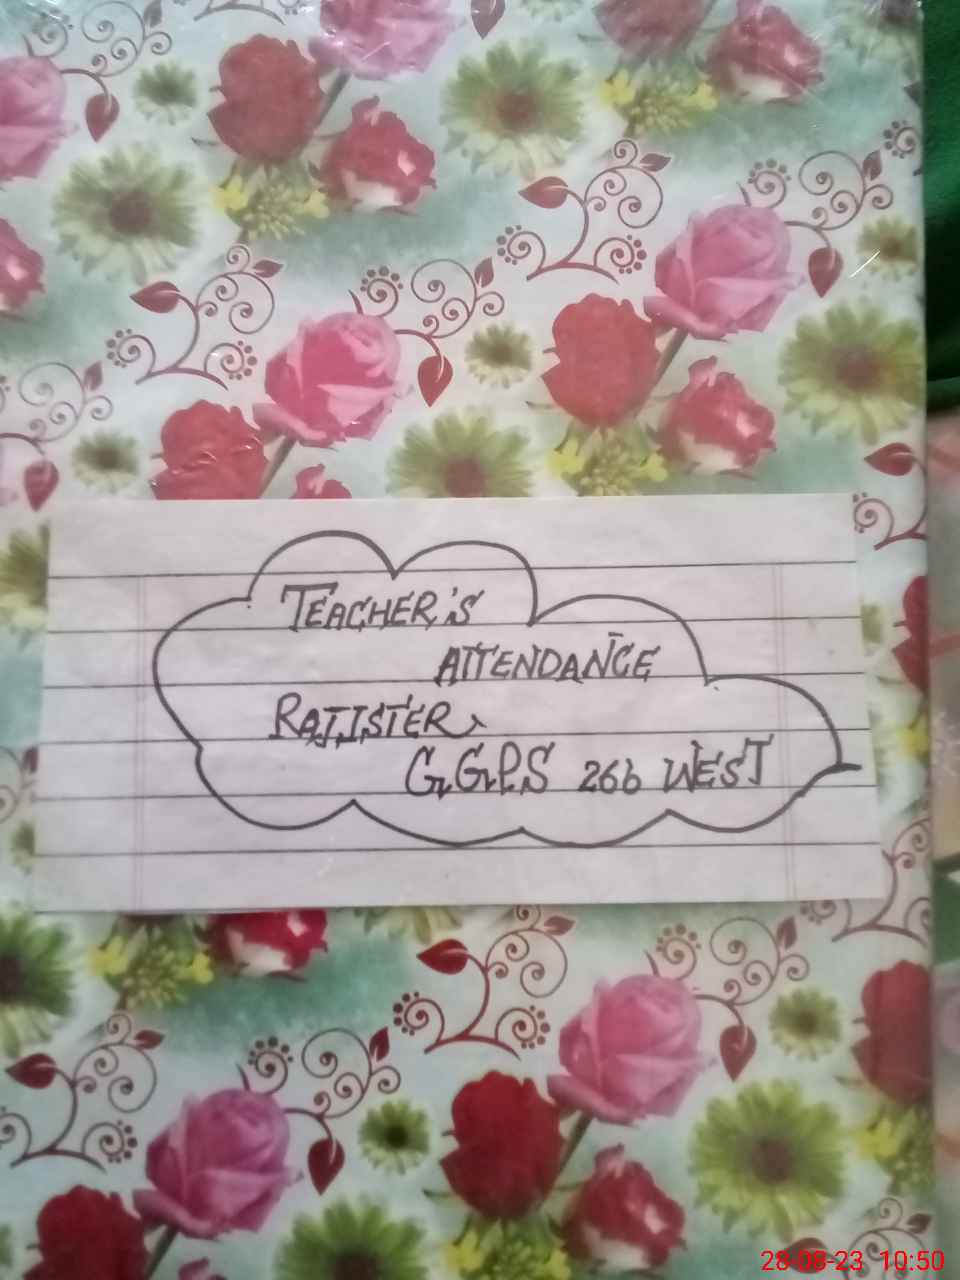 TEACHER'S
ATTENDANCE
RAJISTER
G.G.P.S 266 WEST
28-08-23 10:50